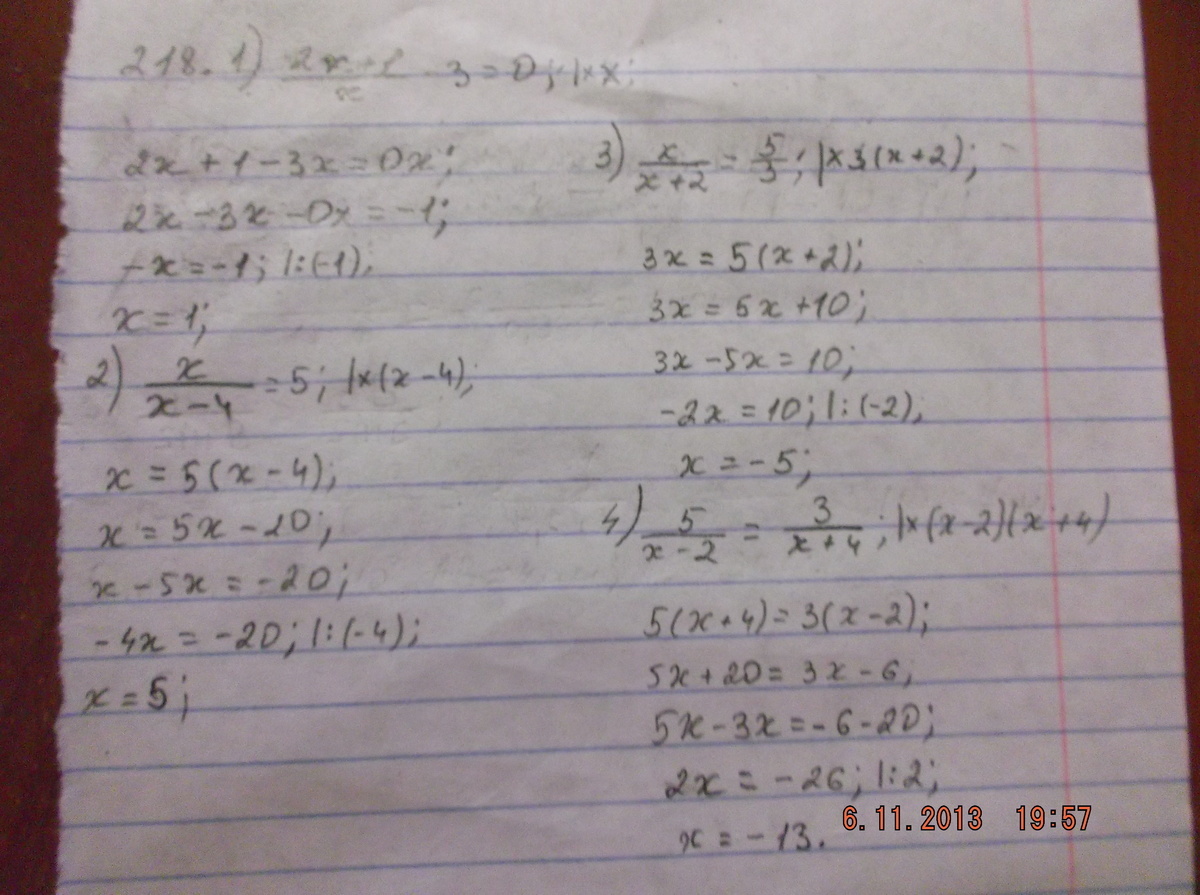 218. 1) (2x+1)/x - 3 = 0; |×x;
2x + 1 - 3x = 0x;
2x - 3x - 0x = -1;
-x = -1; |:(-1);
x = 1;
2) x/(x-4) = 5; |×(x-4);
x = 5(x-4);
x = 5x - 20;
x - 5x = -20;
-4x = -20; |:(-4);
x = 5;
3) x/(x+2) = 5/3; |×3(x+2);
3x = 5(x+2);
3x = 5x + 10;
3x - 5x = 10;
-2x = 10; |:(-2);
x = -5;
4) 5/(x-2) = 3/(x+4); |×(x-2)(x+4)
5(x+4) = 3(x-2);
5x + 20 = 3x - 6;
5x - 3x = -6 - 20;
2x = -26; |:2;
x = -13.
6.11.2013 19:57